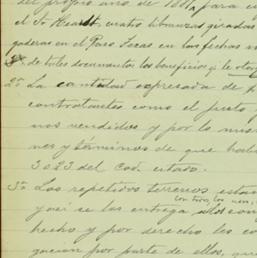 del propio año de 1881, para en
el Sr. Headt, cuatro libranzas giradas
gaderas en el Paso Texas en las fechas
de tales documentos los beneficios q. le otorg
2º La cantidad expresada de p
contratantes como el justo
nos vendidos y por lo mis
nes y términos de que habla
3023 del Cod. citado.
3º Los repetidos terrenos están
con todos los usos,
y así se los entrega
hecho y por derecho les co
gacion por parte de ellos, que